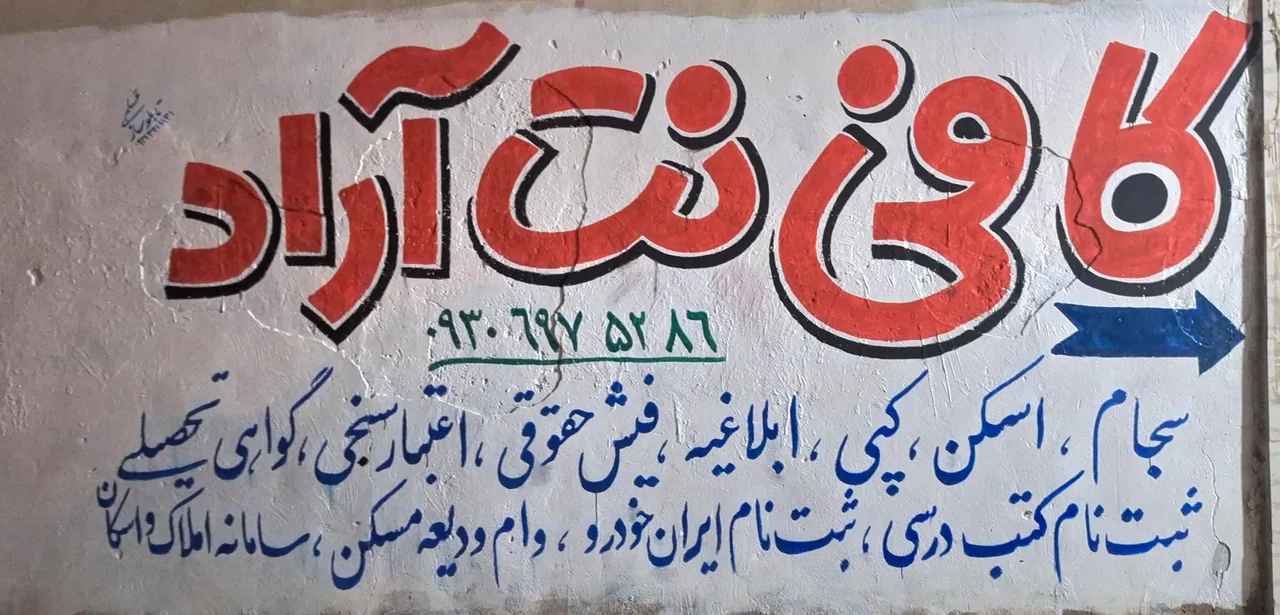 کافی نت آراد
۰۹۳۰ ۶۹۷ ۵۲ ۸۶
سجام ، اسکن ، کپی ، ابلاغیه ، فیش حقوقی ، اعتبارسنجی ، گواهی تحصیلی
ثبت نام کتب درسی ، ثبت نام ایران خودرو ، وام ودیعه مسکن ، سامانه املاک و اسکان